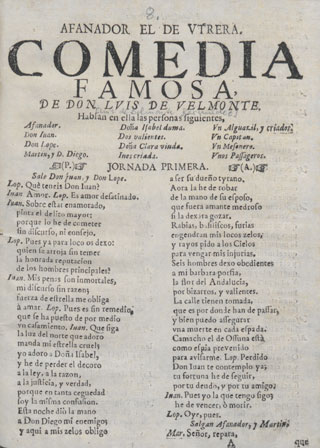 8.
AFANADOR EL DE VTRERA.
COMEDIA
FAMOSA,
DE DON LVIS DE VELMONTE.
Hablan en ella las personas siguientes,
Afanador.
Don Iuan.
Don Lope.
Martin, y D. Diego.
Doña Isabel dama.
Dos valientes.
Deña Clara viuda.
Ines criada.
Vn Alguazil, y criados,
Vn Capitan.
Vn Mesonero.
Vnos Passageros.
(P.) JORNADA PRIMERA. (A.)
Sale Don Juan, y Don Lope.
Lop. Què teneis Don Iuan?
Iuan Amor. Lop. Es amor desatinado.
Iuan. Sobre estar enamorado,
pinta el delito mayor;
porque lo he de cometer
sin discurso, ni consejo.
Lop. Pues ya para loco os dexo:
quien se arroja sin temer
la honrada reputacion
de los hombres principales?
Iuan. Mis penas son inmortales,
mi discurso sin razon;
fuerza de estrella me obliga
à amar. Lop. Pues es sin remedio,
que se ha puesto de por medio
vn casamiento. Iuan. Que siga
la luz del norte que adoro
manda mi estrella cruel;
yo adoro a Doña Isabel,
y he de perder el decoro
a la ley, a la razon,
a la justicia, y verdad,
porque en tanta ceguedad
soy la misma confusion.
Esta noche diò la mano
a Don Diego mi enemigo;
y aqui a mis zelos obligo
a ser su dueño tyrano,
Aora la he de robar
de la mano de su esposo,
que fuera amante medroso
si la dexàra gozar.
Rabias, basiliscos, furias
engendran mis locos zelos,
y rayos pido a los Cielos
para vengar mis injurias.
Seis hombres dexo obedientes
a mi barbara porfia,
la flor del Andalucia,
por bizarros, y valientes.
La calle tienen tomada,
que es por donde han de passar,
y bien puedo assegurar
vna muerte en cada espada.
Camacho el de Ossuna està
como espia prevenido
para avisarme. Lop. Perdido
Don Iuan te contemplo ya;
tu fortuna he de seguir,
por tu deudo, y por tu amigo;
Iuan. Pues yo la que tengo sigo;
he de vencer, ò morir.
Lop. Oye, pues.
Salgan Afanador, y Martin.
Mar. Señor, repara,
A que